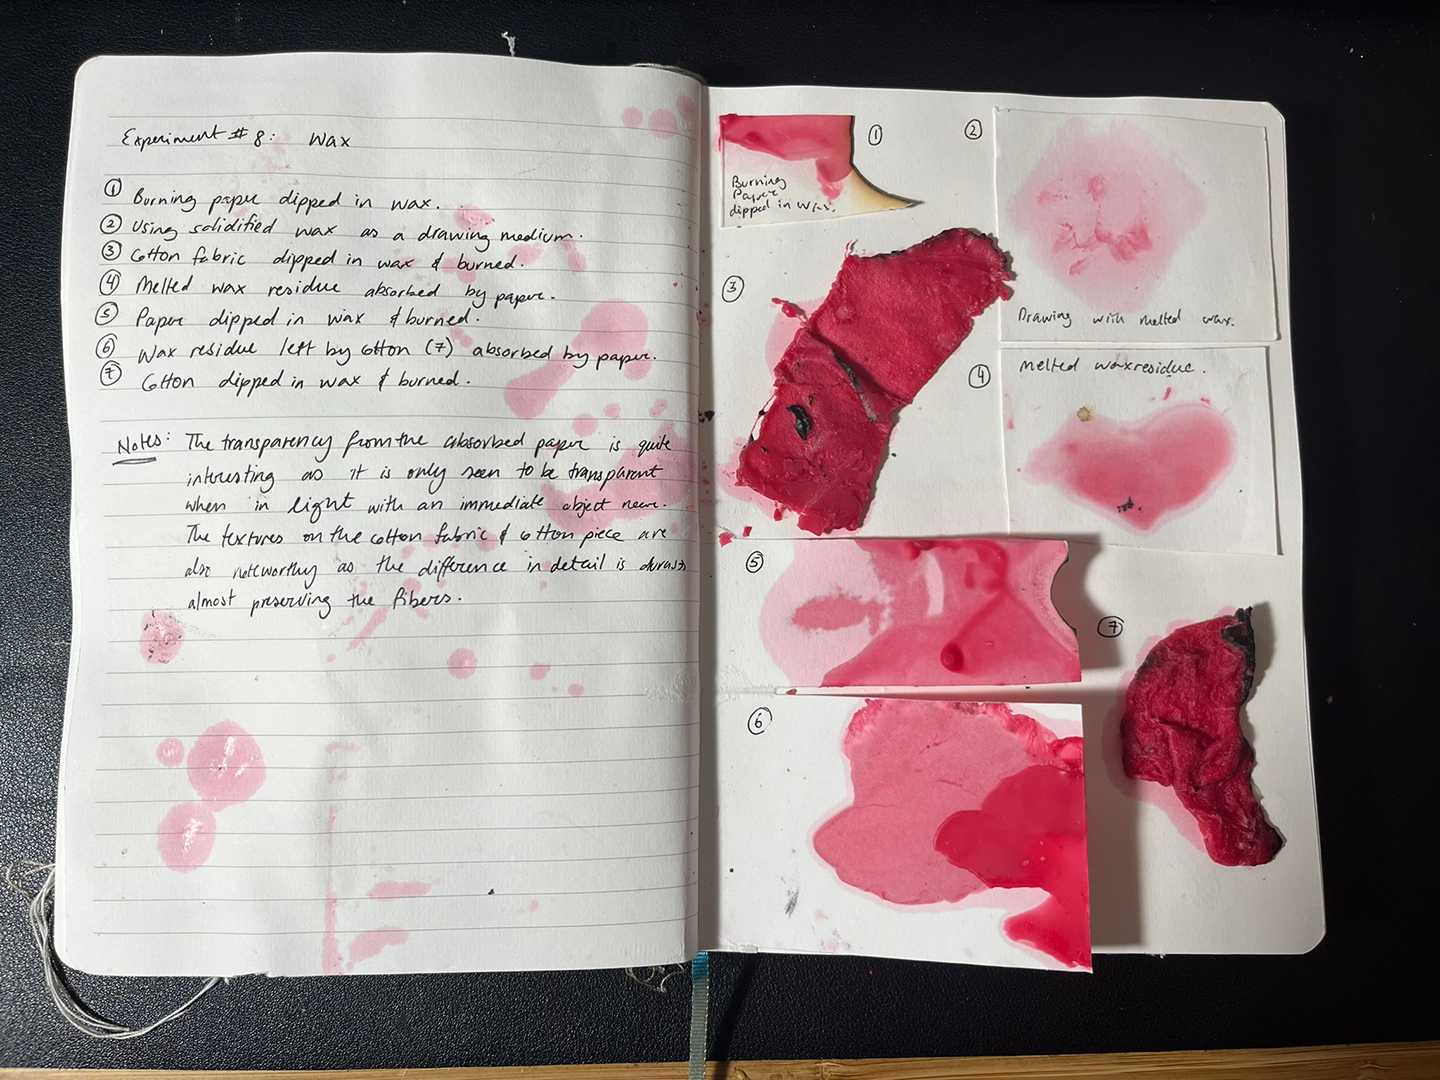 Experiment # 8: Wax
① Burning paper dipped in wax.
② Using solidified wax as a drawing medium.
③ Cotton fabric dipped in wax & burned.
④ Melted wax residue absorbed by paper.
⑤ Paper dipped in wax & burned.
⑥ Wax residue left by cotton (7) absorbed by paper.
⑦ Cotton dipped in wax & burned.
Notes: The transparency from the absorbed paper is quite
interesting as it is only seen to be transparent
when in light with an immediate object near.
The textures on the cotton fabric & cotton piece are
also noteworthy as the difference in detail is
almost preserving the fibers.
①
Burning
Paper
dipped in wax.
②
Drawing with melted wax.
③
④
Melted wax residue.
⑤
⑥
⑦